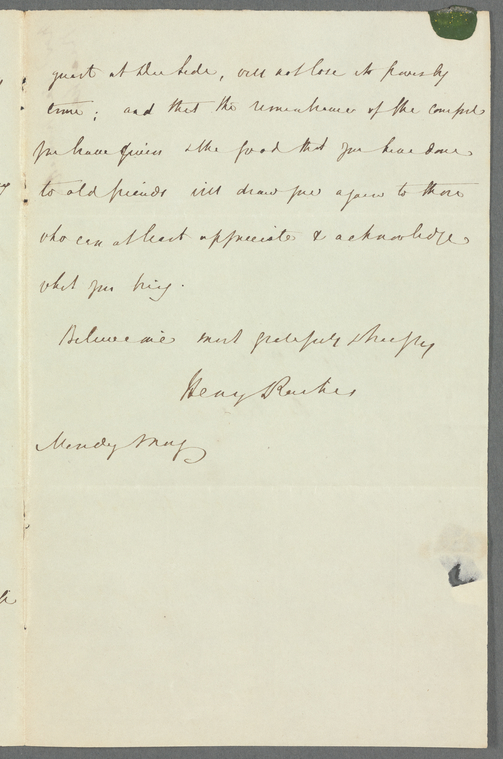 guest at Dee Side, will not lose its power by
time; and that the remembrance of the comfort
you have given & the good that you have done
to old friends will draw you again to those
who can at least appreciate & acknowledge
what you bring.
Believe me most gratefully &
Henry Raikes
Monday